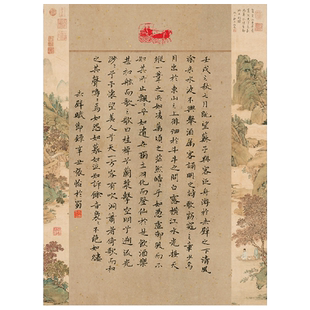 壬戌之秋七月既望蘇子與客泛舟游於赤壁之下清風
徐來水波不興舉酒屬客誦明月之詩歌窈窕之章少焉
月出於東山之上徘徊於斗牛之間白露橫江水光接天
縱一葦之所如凌萬頃之茫然浩浩乎如馮虛御風而不
知其所止飄飄乎如遺世獨立羽化而登仙於是飲酒樂
甚扣舷而歌之歌曰桂棹兮蘭槳擊空明兮溯流光渺
渺兮予懷望美人兮天一方客有吹洞簫者倚歌而和
之其聲嗚嗚然如怨如慕如泣如訴餘音裊裊不絕如縷
赤壁賦節錄